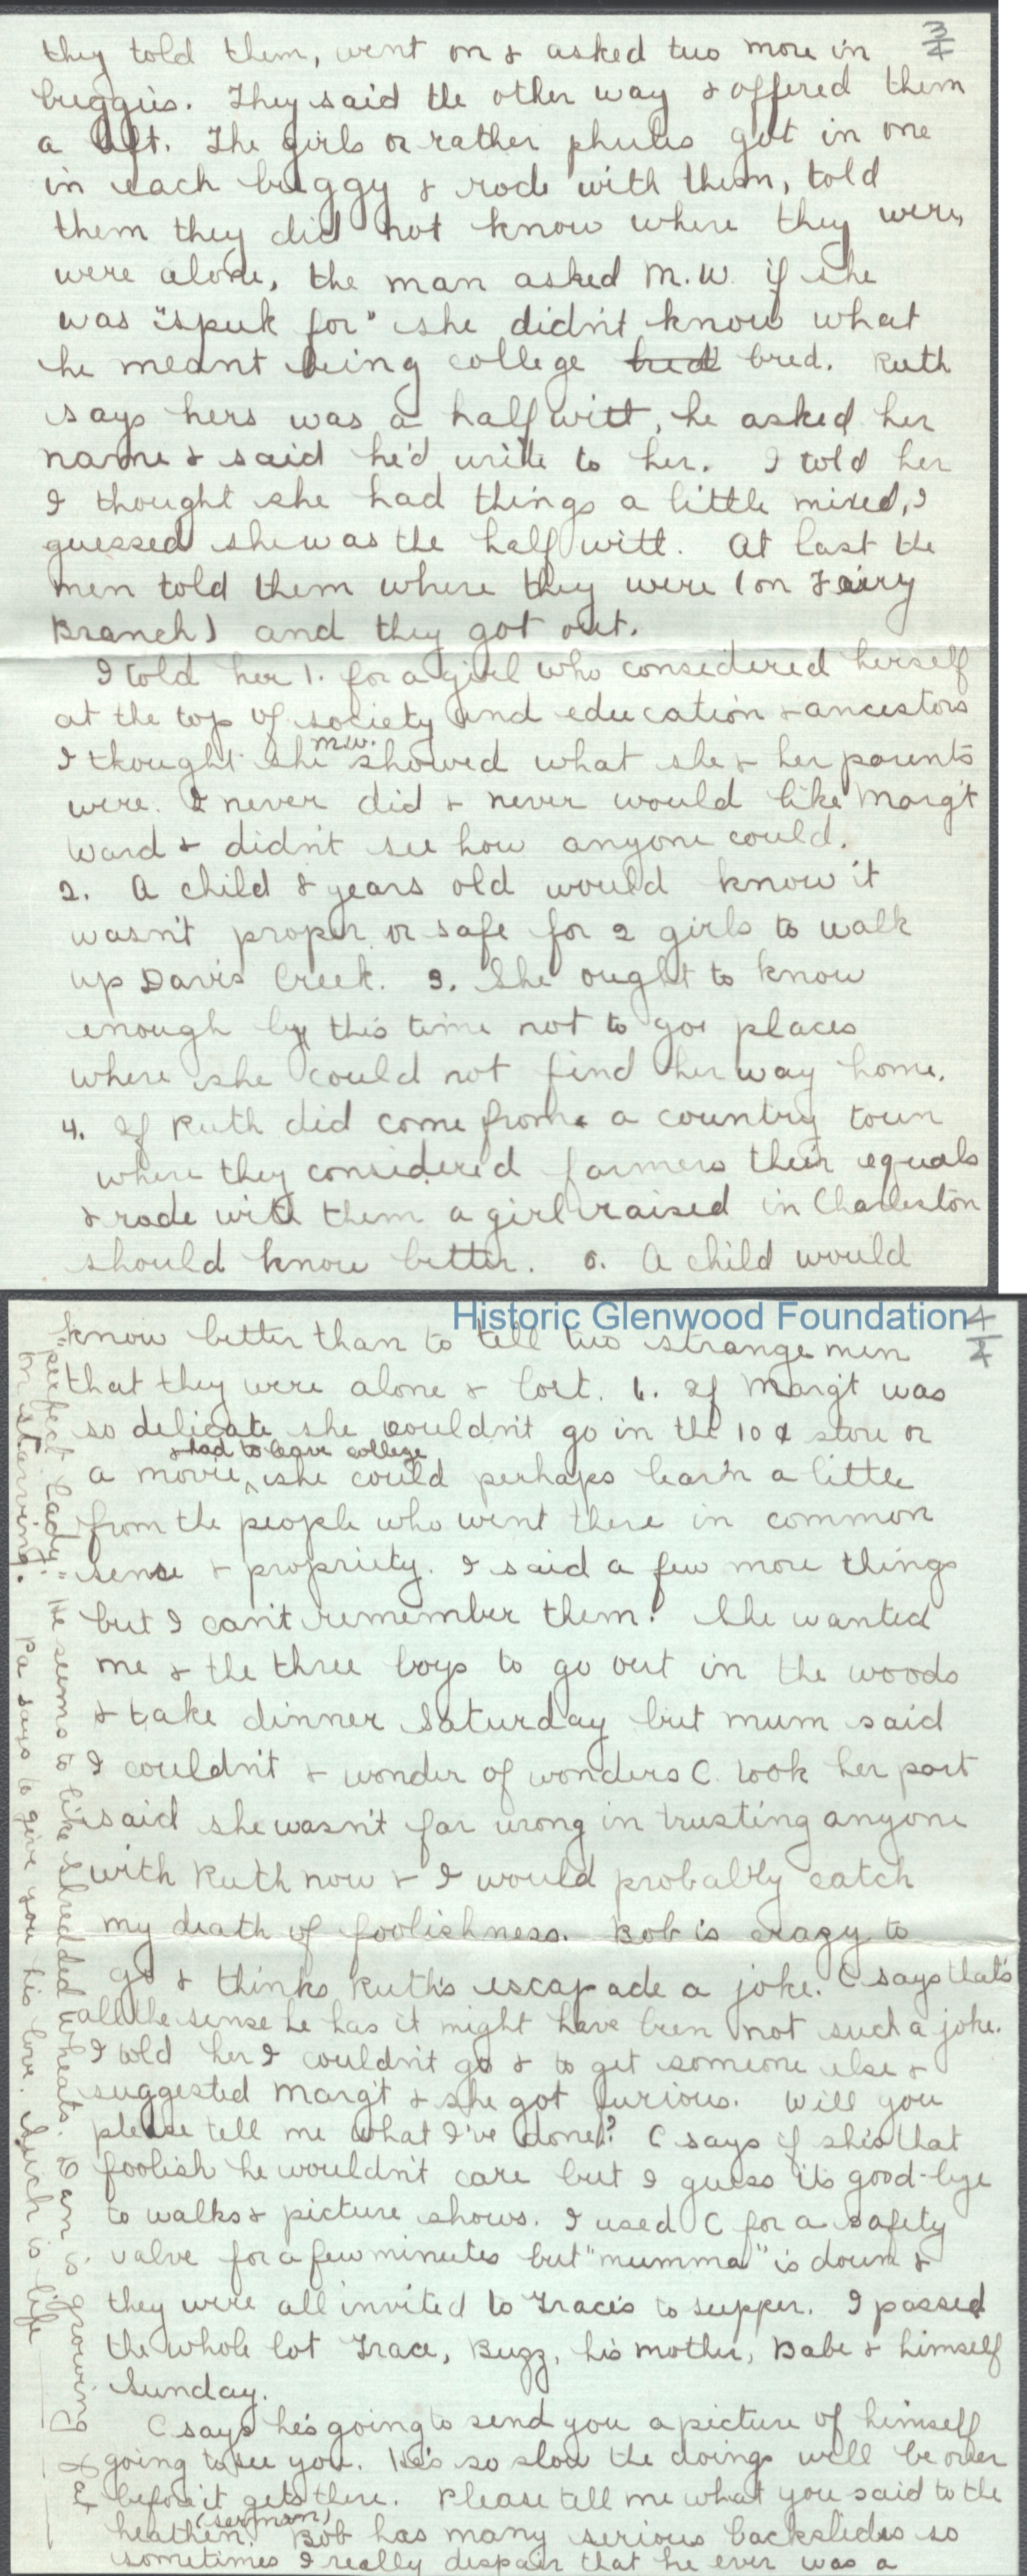 3/4
they told them, went on & asked two more in
buggies. They said the other way & offered them
a lift. The girls or rather phules got in one
in each buggy & rode with them, told
them they did not know where they were,
were alone, the man asked M.W. if she
was "spuk for" she didn't know what
he meant being college bred bred. Ruth
says hers was a half witt, he asked her
name & said he'd write to her. I told her
I thought she had things a little mixed, I
guessed she was the half witt. At last the
men told them where they were (on Fairy
Branch) and they got out.
I told her 1. for a girl who considered herself
at the top of society and education & ancestors
I thought she M.W. showed what she & her parents
were. I never did & never would like Marg't
Ward & didn't see how anyone could.
2. A child 8 years old would know it
wasn't proper or safe for 2 girls to walk
up Davis Creek. 3. She ought to know
enough by this time not to go places
where she could not find her way home.
4. If Ruth did come from a country town
where they considered farmers their equals
& rode with them a girl raised in Charleston
should know better. 5. A child would
Historic Glenwood Foundation
4/4
know better than to tell two strange men
that they were alone & lost. 6. If Marg't was
so delicate she couldn't go in the 10¢ store or
& had to leave college
a movie, she could perhaps learn a little
from the people who went there in common
sense & propriety. I said a few more things
but I can't remember them. She wanted
me & the three boys to go out in the woods
& take dinner Saturday but mum said
I couldn't & wonder of wonders C. took her part
said she wasn't far wrong in trusting anyone
with Ruth now & I would probably catch
my death of foolishness. Bob is crazy to
go & thinks Ruth's escapade a joke. C says that's
all the sense he has it might have been not such a joke.
I told her I couldn't go & to get someone else &
suggested Marg't & she got furious. Will you
please tell me what I've done? C says if she's that
foolish he wouldn't care but I guess it's good-bye
to walks & picture shows. I used C for a safety
valve for a few minutes but "mumma" is down &
they were all invited to Grace's to supper. I passed
the whole lot Grace, Buzz, his mother, Babe & himself
Sunday.
C says he's going to send you a picture of himself
going to see you. He's so slow the doings will be over
before it gets there. Please tell me what you said to the
heathen. (sermon) Bob has many serious backslides so
sometimes I really despair that he ever was a
"perfect lady." He seems to like Shredded Wheats. Dan is growing fat
on starving. Pa says to give you his love. Such is life